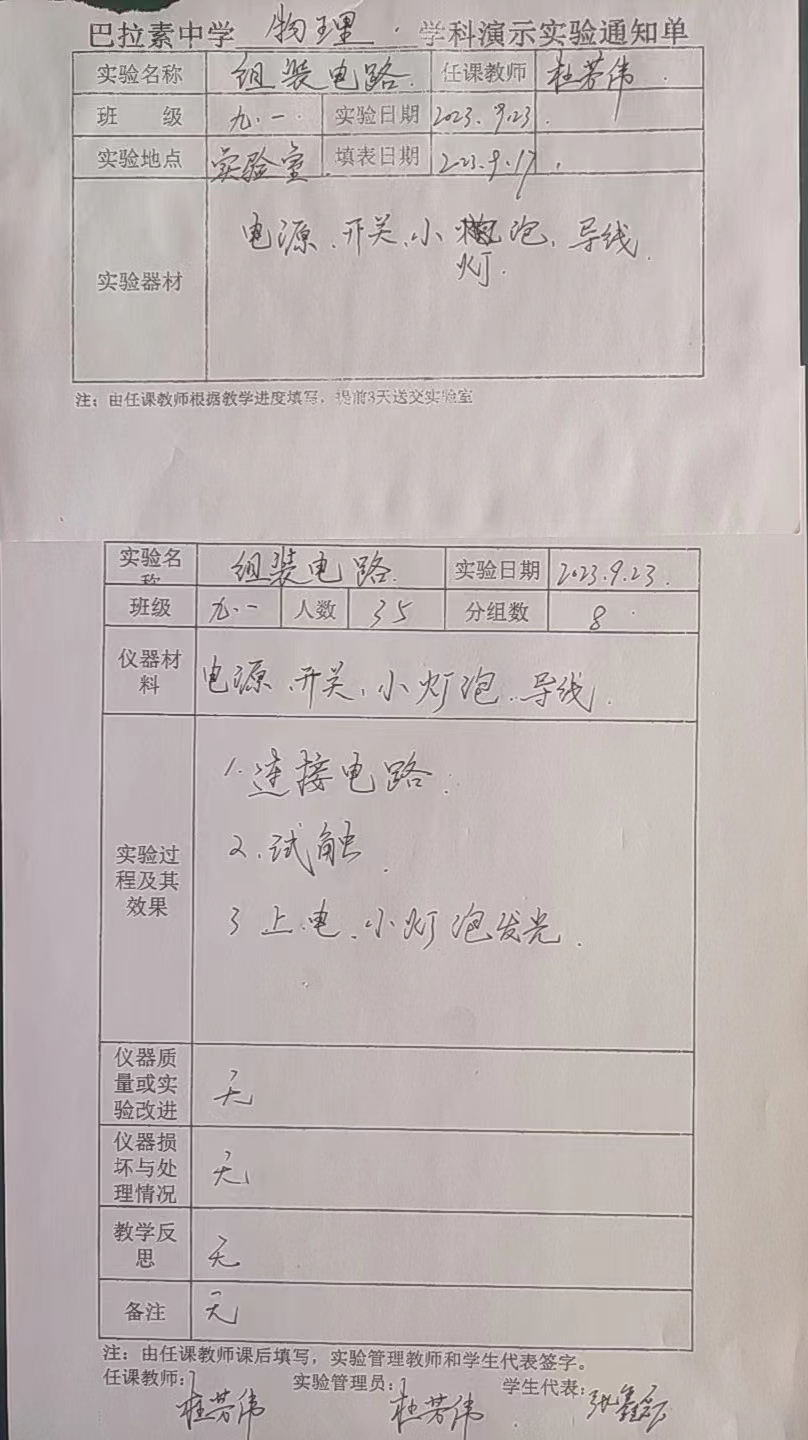 巴拉素中学 物理 学科演示实验通知单
实验名称 组装电路 任课教师 杜芳伟
班 级 九.一 实验日期 2023.9.23
实验地点 实验室 填表日期 2023.9.17
电源、开关、小 泡、导线
灯
实验器材
注：由任课教师根据教学进度填写，提前3天送交实验室
实验名称 组装电路 实验日期 2023.9.23
班级 九.一 人数 35 分组数 8
仪器材
料
电源、开关、小灯泡、导线
1.连接电路
2.试触
实验过
程及其
效果
3 上电、小灯泡发光
仪器质
量或实
验改进
无
仪器损
坏与处
理情况
无
教学反
思
无
备注 无
注：由任课教师课后填写，实验管理教师和学生代表签字。
任课教师： 实验管理员： 学生代表：
杜芳伟 杜芳伟 张鑫